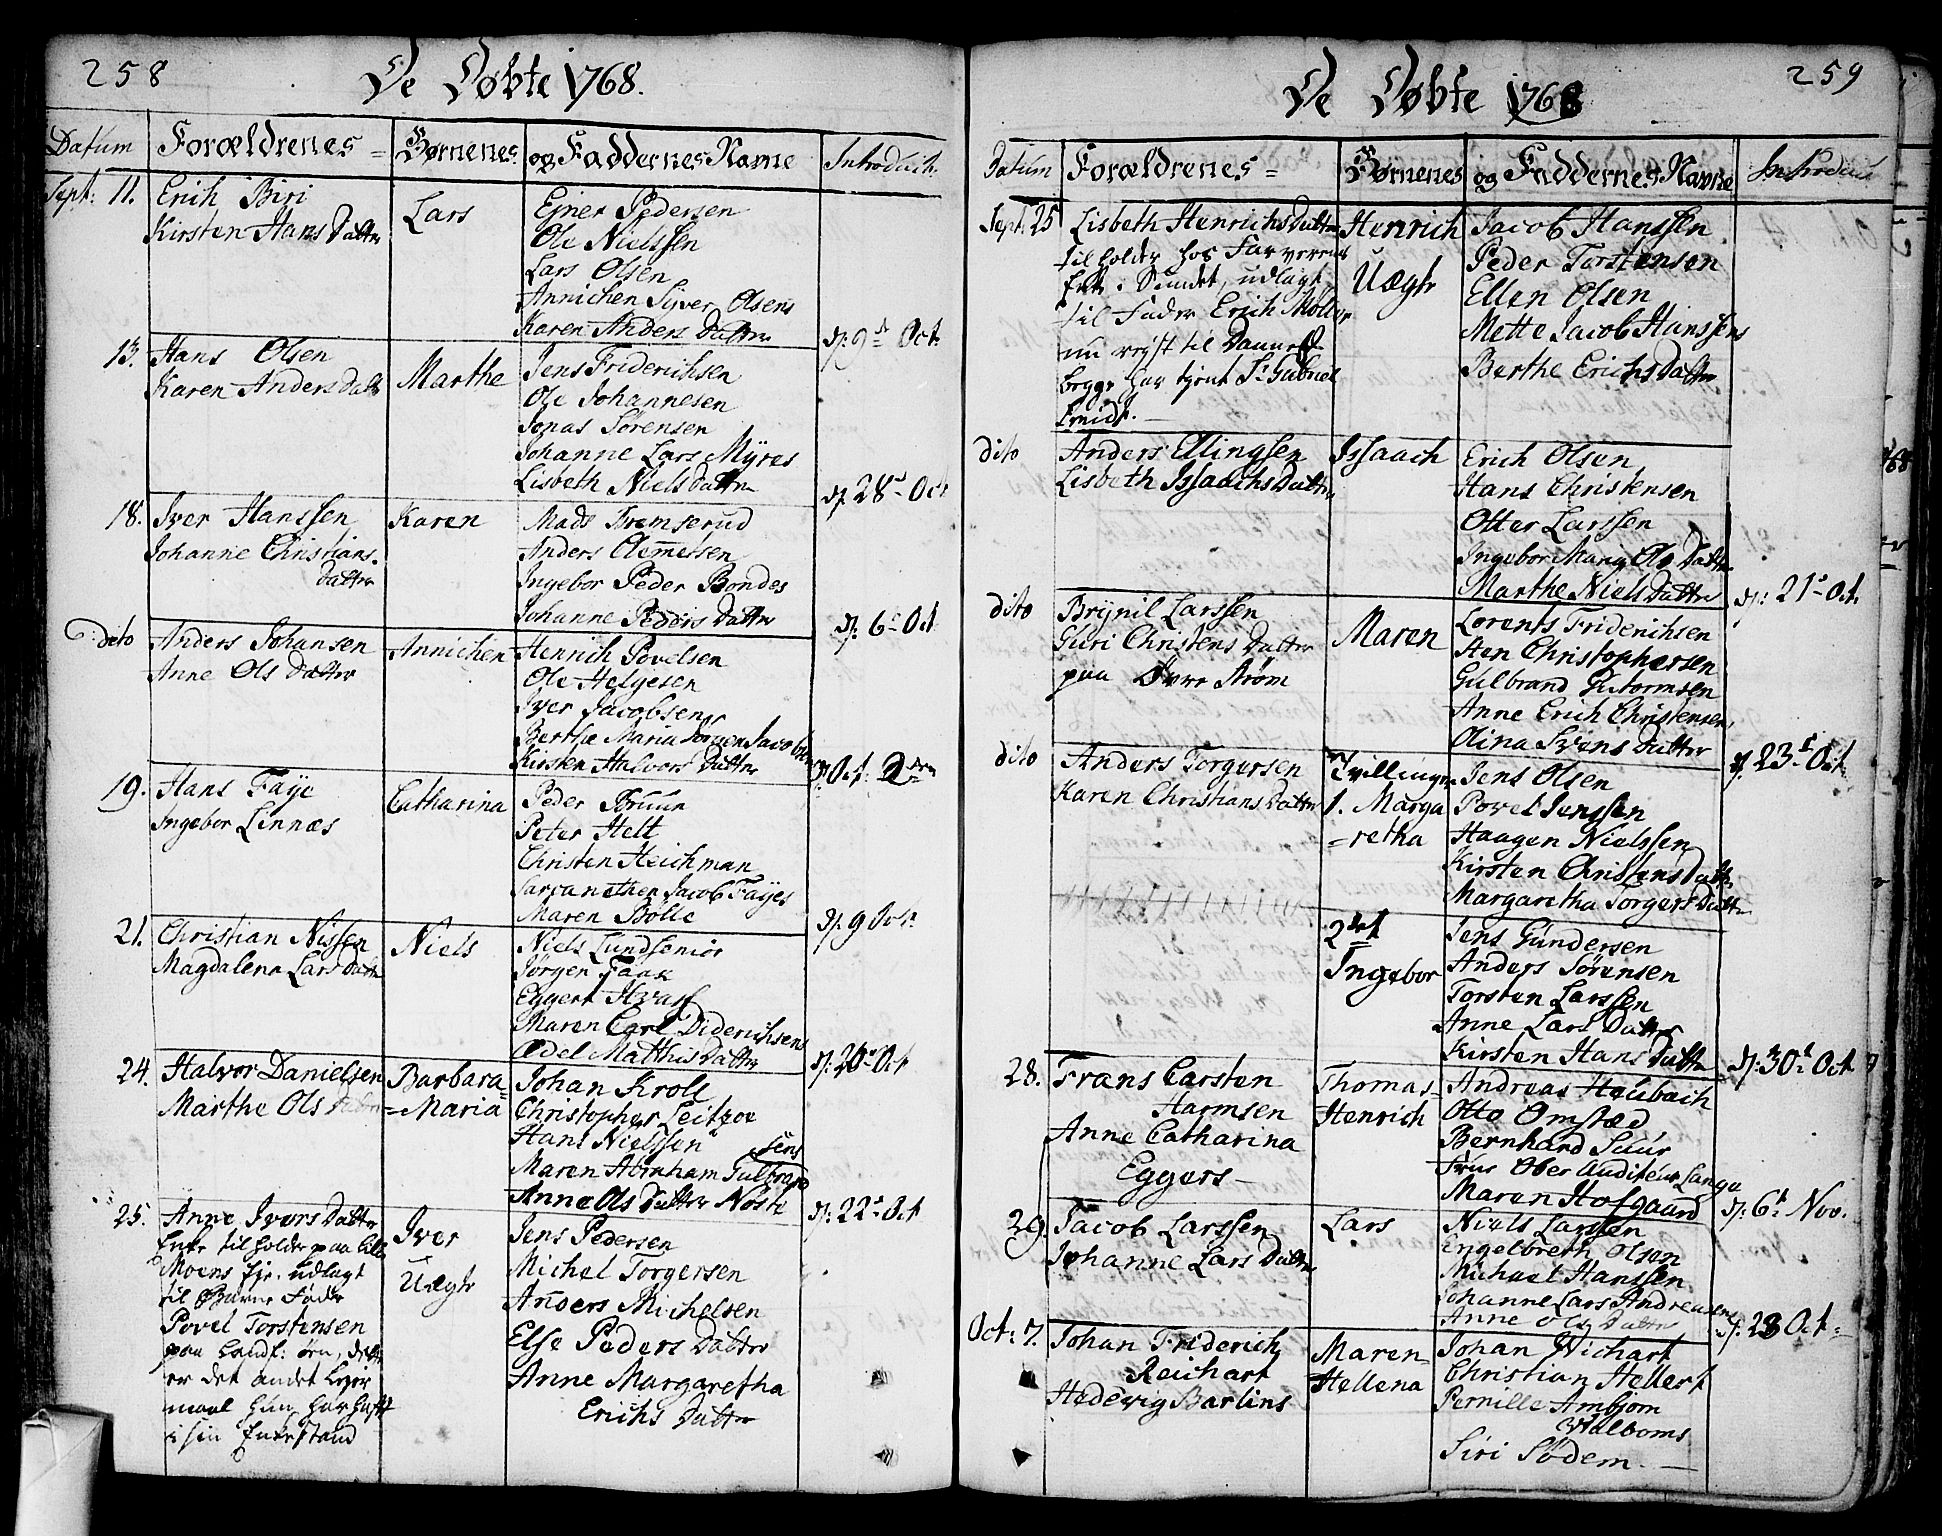 258
De Døbte 1768.
Datum
Forældrenes =
Børnenes
og Faddernes Name
Introduct.
Sept: 11.
Erich Biri
Kirsten Hans Datter
Lars
Ejner Pedersen
Ole Nielssen
Lars Olsen
Annichen Syver Olsens
Karen Anders Datter
d. 9de Oct.
13.
Hans Olsen
Karen Anders Datt
Marthe
Jens Friderichsen
Ole Johannesen
Jonas Sørensen
Johanne Lars Myres
Lisbeth Niels Datter
d. 28 Oct
18.
Iver Hanssen
Johanne Christians
Datter
Karen
Mads Bremserud
Anders Clemetsen
Ingebor Peder Bondes
Johanne Peders Datter
d. 6 Oct
dito
Anders Johansen
Anne Ols Datter
Annichen
Henrich Povelsen
Ole Helgesen
Iver Jacobsen
Berthe Maria Jørgen Jacobsens
Kirsten Halvors Datter
d. Oct. 2den
19.
Hans Faye
Ingebor Linnæs
Catharina
Peder Bruun
Peter Helt
Christen Heichman
Jacob Fayes
Maren Bolle
d. 9 Oct.
21.
Christian Nissen
Magdalena Lars Datter
Niels
Niels Lund senior
Jørgen Faax
Eggert Hvass
Maren Carl Diderichsens
Ædel Matthis Datter
d. 20 Oct
24.
Halvor Danielsen
Marthe Ols Datter
Barbara
=Maria
Johan Kroll
Christopher Leitzoe
Hans Nielssen
Maren Abraham Gulbrand
sens
Anne Ols Datter Nøste
d. 22 Oct
25.
Anne Ivers Datter
Enke til holder paa
Moens Ejr. udlagt
til Barne Fader
Povel Torstensen
paa Landf: dette
er det andet Leyer
maal hun har haft
i sin Enkestand
Iver
Uægte
Jens Pedersen
Michel Torgersen
Anders Michelsen
Else Peders Datter
Anne Margaretha
Erichs Datter
259
De Døbte 1768
Datum
Forældrenes =
Børnenes
og Faddernes Navne
Introduct
Sept. 25
Lisbeth Henrichs Datter
tilholder hos Farverens
Enke i Sundet, udlagt
til Fader Erich Møller
nu reyst til Danmark
begge har tjent Sr Gabriel
Smidt.
Henrich
Uægte
Jacob Hanssen
Peder Torstensen
Ellen Olsen
Mette Jacob Hanssens
Berthe Erichs Datter
dito
Anders Ellingsen
Lisbeth Issaachs Datter
Issaach
Erich Olsen
Hans Christensen
Otter Larssen
Ingebor Mang Ols Datter
Marthe Niels Datter
d. 21 Oct.
dito
Brynil Larssen
Guri Christens Datter
paa Øvre Strøm
Maren
Lorents Friderichsen
Sten Christophersen
Gulbrand Guttormsen
Anne Erich Christensens
Olina Svens Datter
d. 23 Oct.
dito
Anders Torgersen
Karen Christians Datter
Tvillinger
1. Marga
=retha
Jens Olsen
Povel Jenssen
Haagen Nielssen
Kirsten Christens Datter
Margaretha Torgers Datter
2det
Ingebor
Jens Gundersen
Anders Sørensen
Torsten Larssen
Anne Lars Datter
Kirsten Hans Datter
d. 30 Oct
28.
Frans Carsten
Harmsen
Anne Catharina
Eggers
Thomas=
Henrich
Andreas Heubach
Otto Omsted
Bernhard Suur
Frue Ober Auditeur Lange
Maren Hofgaard
d. 6 Nov.
29.
Jacob Larssen
Johanne Lars Datter
Lars
Niels Larssen
Engelbreth Olsen
Michael Hanssen
Johanne Lars Andreasens
Anne Ols Datter
d. 23 Oct.
Oct: 7.
Johan Friderich
Reichart
Hedevig Barlins
Maren=
Hellena
Johan Wichart
Christian Hellert
Pernille Ambjørn
Walboms
Siri Sødem.